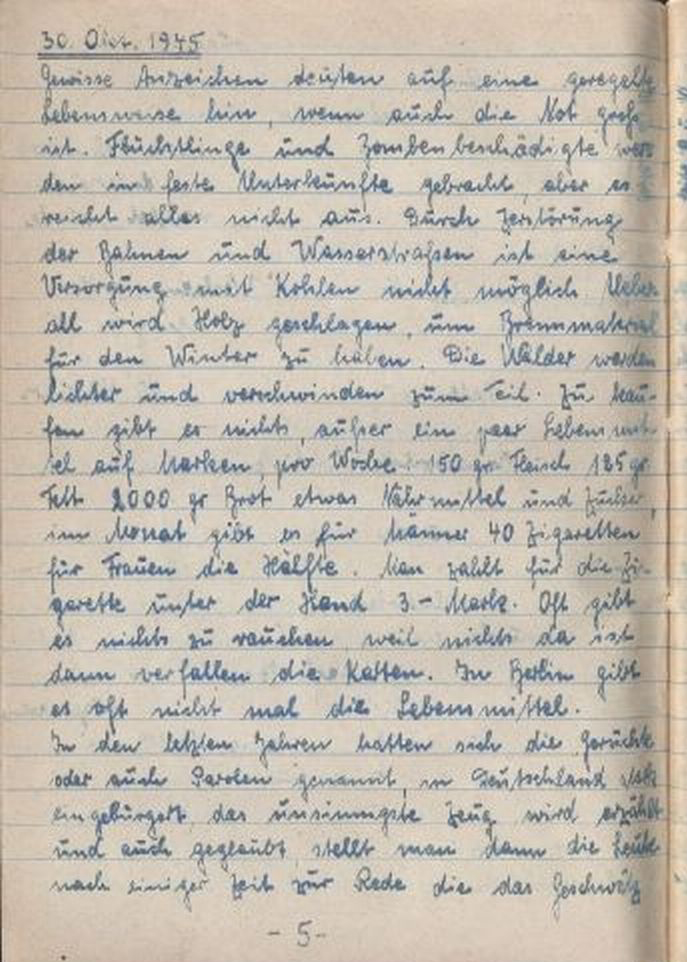 30. Okt. 1945
Gewisse Anzeichen deuten auf eine geregelte
Lebensweise hin, wenn auch die Not groß
ist. Flüchtlinge und Bombenbeschädigte wer-
den in feste Unterkünfte gebracht, aber es
reicht alles nicht aus. Durch Zerstörung
der Bahnen und Wasserstraßen ist eine
Versorgung mit Kohlen nicht möglich. Ueber-
all wird Holz geschlagen, um Brennmaterial
für den Winter zu haben. Die Wälder werden
lichter und verschwinden zum Teil. Zu kau-
fen gibt es nichts, außer ein paar Lebensmit-
tel auf Marken, pro Woche 150 gr Fleisch 125 gr
Fett 2000 gr Brot etwas Nährmittel und Zucker,
im Monat gibt es für Männer 40 Zigaretten
für Frauen die Hälfte. Man zahlt für die Zi-
garette unter der Hand 3.- Mark. Oft gibt
es nichts zu rauchen, weil nichts da ist
dann verfallen die Karten. In Berlin gibt
es oft nicht mal die Lebensmittel.
In den letzten Jahren hatten sich die Gerüchte
oder auch Parolen genannt, in Deutschland
eingebürgert, das unsinnigste Zeug wird erzählt
und auch geglaubt, stellt man dann die Leute
nach einiger Zeit zur Rede die das Geschwätz
- 5 -